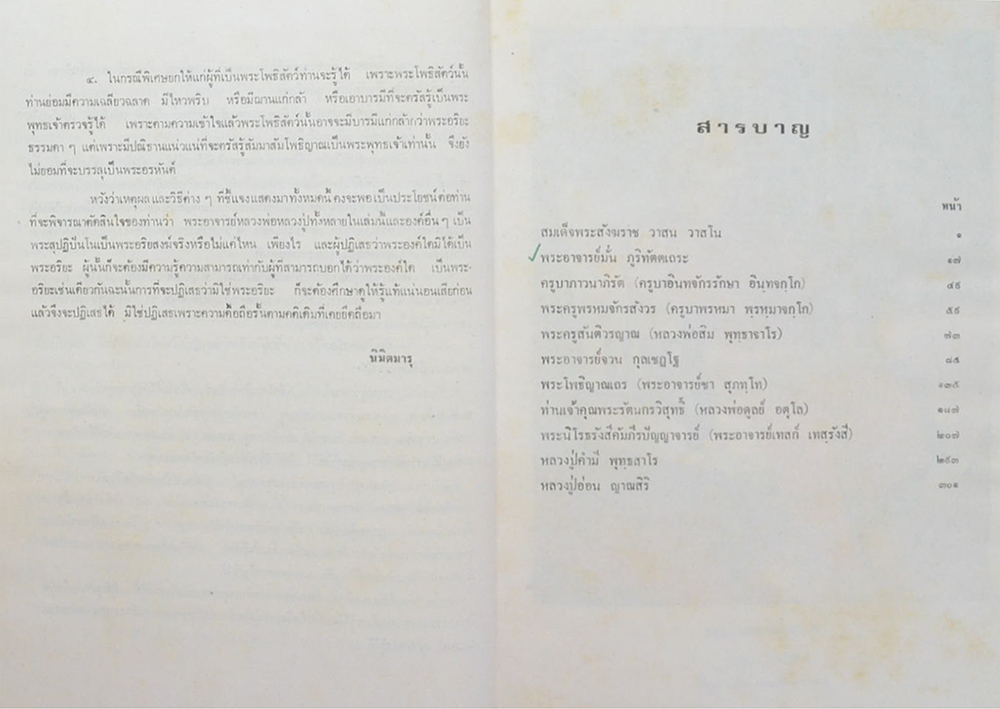 ๔. ในกรณีพิเศษยกให้แก่ผู้ที่เป็นพระโพธิสัตว์ท่านจะรู้ได้ เพราะพระโพธิสัตว์นั้น
ท่านย่อมมีความเฉลียวฉลาด มีไหวพริบ หรือมีฌานแก่กล้า หรือเอาบารมีที่จะตรัสรู้เป็นพระ
พุทธเจ้าตรวจรู้ได้ เพราะตามความเข้าใจแล้วพระโพธิสัตว์นั้นอาจจะมีบารมีแก่กล้ากว่าพระอริยะ
ธรรมดา ๆ แต่เพราะมีปณิธานแน่วแน่ที่จะตรัสรู้สัมมาสัมโพธิญาณเป็นพระพุทธเจ้าเท่านั้น จึงยัง
ไม่ยอมที่จะบรรลุเป็นพระอรหันต์
หวังว่าเหตุผลและวิธีต่าง ๆ ที่ชี้แจงแสดงมาทั้งหมดนี้ คงจะพอเป็นประโยชน์ต่อท่าน
ที่จะพิจารณาตัดสินใจของท่านว่า พระอาจารย์หลวงพ่อหลวงปู่ทั้งหลายในเล่มนี้และองค์อื่น ๆ เป็น
พระสุปฏิปันโนเป็นพระอริยสงฆ์จริงหรือไม่แค่ไหน เพียงไร และผู้ปฏิเสธว่าพระองค์ใดมิได้เป็น
พระอริยะ ผู้นั้นก็จะต้องมีความรู้ความสามารถเท่ากับผู้ที่สามารถบอกได้ว่าพระองค์ใด เป็นพระ-
อริยะเช่นเดียวกันฉะนั้นการที่จะปฏิเสธว่ามิใช่พระอริยะ ก็จะต้องศึกษาดูให้รู้แท้แน่นอนเสียก่อน
แล้วจึงจะปฏิเสธได้ มิใช่ปฏิเสธเพราะความดื้อถือรั้นตามคติเดิมที่เคยยึดถือมา
นิมิตมารุ
สารบาญ
หน้า
สมเด็จพระสังฆราช วาสน วาสโน ๑
พระอาจารย์มั่น ภูริทัตตเถระ ๑๗
ครูบาภาวนาภิรัต (ครูบาอินทจักรรักษา อินฺทจกฺโก) ๔๙
พระครูพรหมจักรสังวร (ครูบาพรหมา พฺรหฺมาจกฺโก) ๕๙
พระครูสันติวรญาณ (หลวงพ่อสิม พุทฺธาจาโร) ๗๓
พระอาจารย์จวน กุลเชฏฺโฐ ๘๕
พระโพธิญาณเถร (พระอาจารย์ชา สุภทฺโท) ๑๓๕
ท่านเจ้าคุณพระรัตนกรวิสุทธิ์ (หลวงพ่อดูลย์ อตุโล) ๑๘๗
พระนิโรธรังสีคัมภีรปัญญาจารย์ (พระอาจารย์เทสก์ เทสฺรังสี) ๒๐๗
หลวงปู่คำมี พุทฺธสาโร ๒๙๓
หลวงปู่อ่อน ญาณสิริ ๓๐๑